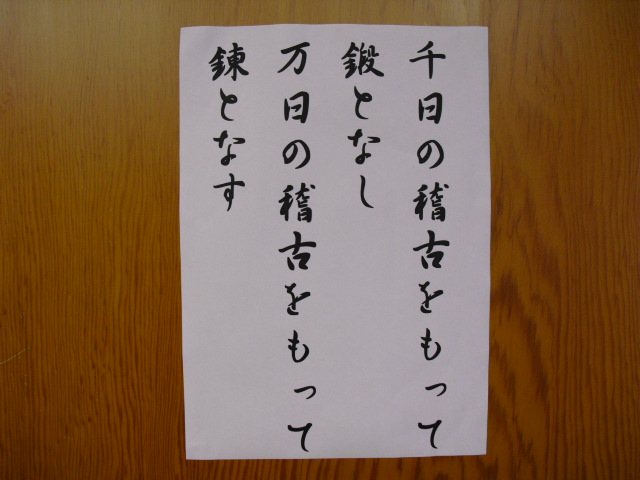 千日の稽古をもって
鍛となし
万日の稽古をもって
錬となす